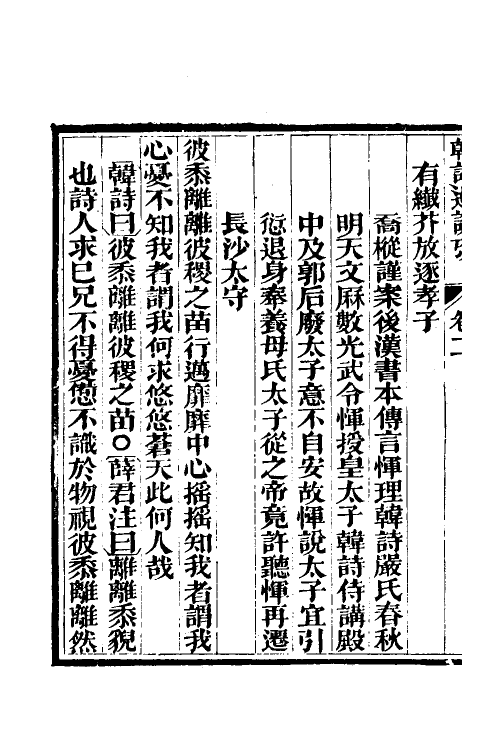 有纎芥放逐孝子
喬樅謹案後漢書本傳言惲理韓詩嚴氏春秋
明天文厤數光武令惲授皇太子韓詩侍講殿
中及郭后廢太子意不自安故惲說太子宜引
愆退身奉養母氏太子從之帝竟許聽惲再遷
長沙太守
彼黍離離彼稷之苗行邁靡靡中心揺揺知我者謂我
心憂不知我者謂我何求悠悠蒼天此何人哉
韓詩曰彼黍離離彼稷之苗○薛君注曰離離黍貌
也詩人求巳兄不得憂懣不識於物視彼黍離離然